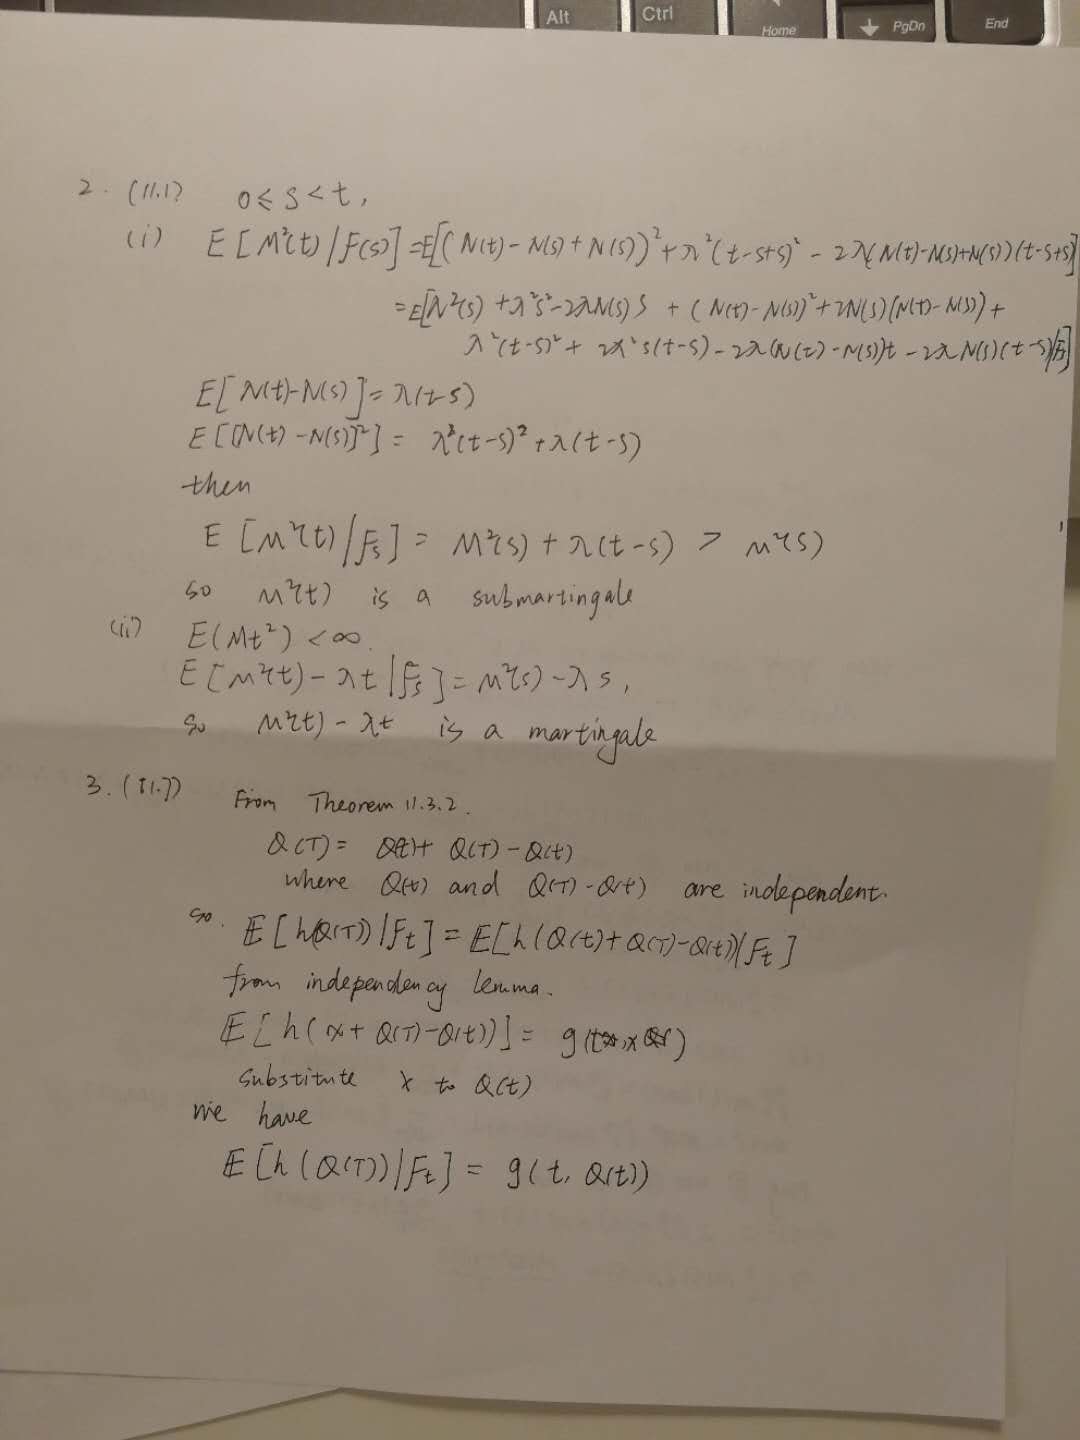 Alt Ctrl Home PgDn End
2. (11.1) 0 ≤ s < t,
(i) E[M²(t)|F(s)] = E[(N(t) - N(s) + N(s))² + λ²(t-s+s)² - 2λ(N(t)-N(s)+N(s))(t-s+s)]
= E[N²(s) + λ²s² - 2λN(s)s + (N(t) - N(s))² + 2N(s)(N(t) - N(s)) +
λ²(t-s)² + 2λ²s(t-s) - 2λ(N(t) - N(s))t - 2λN(s)(t-s)|Fs]
E[N(t)-N(s)] = λ(t-s)
E[(N(t) - N(s))²] = λ²(t-s)² + λ(t-s)
then
E[M²(t)|Fs] = M²(s) + λ(t-s) > M²(s)
so M²(t) is a submartingale
(ii) E(Mt²) < ∞.
E[M²(t) - λt|Fs] = M²(s) - λs,
so M²(t) - λt is a martingale
3. (11.7) From Theorem 11.3.2.
Q(T) = Q(t) + Q(T) - Q(t)
where Q(t) and Q(T) - Q(t) are independent.
so. E[h(Q(T))|Ft] = E[h(Q(t) + Q(T) - Q(t))|Ft]
from independency lemma.
E[h(x + Q(T) - Q(t))] = g(t, x)
substitute x to Q(t)
we have
E[h(Q(T))|Ft] = g(t, Q(t))